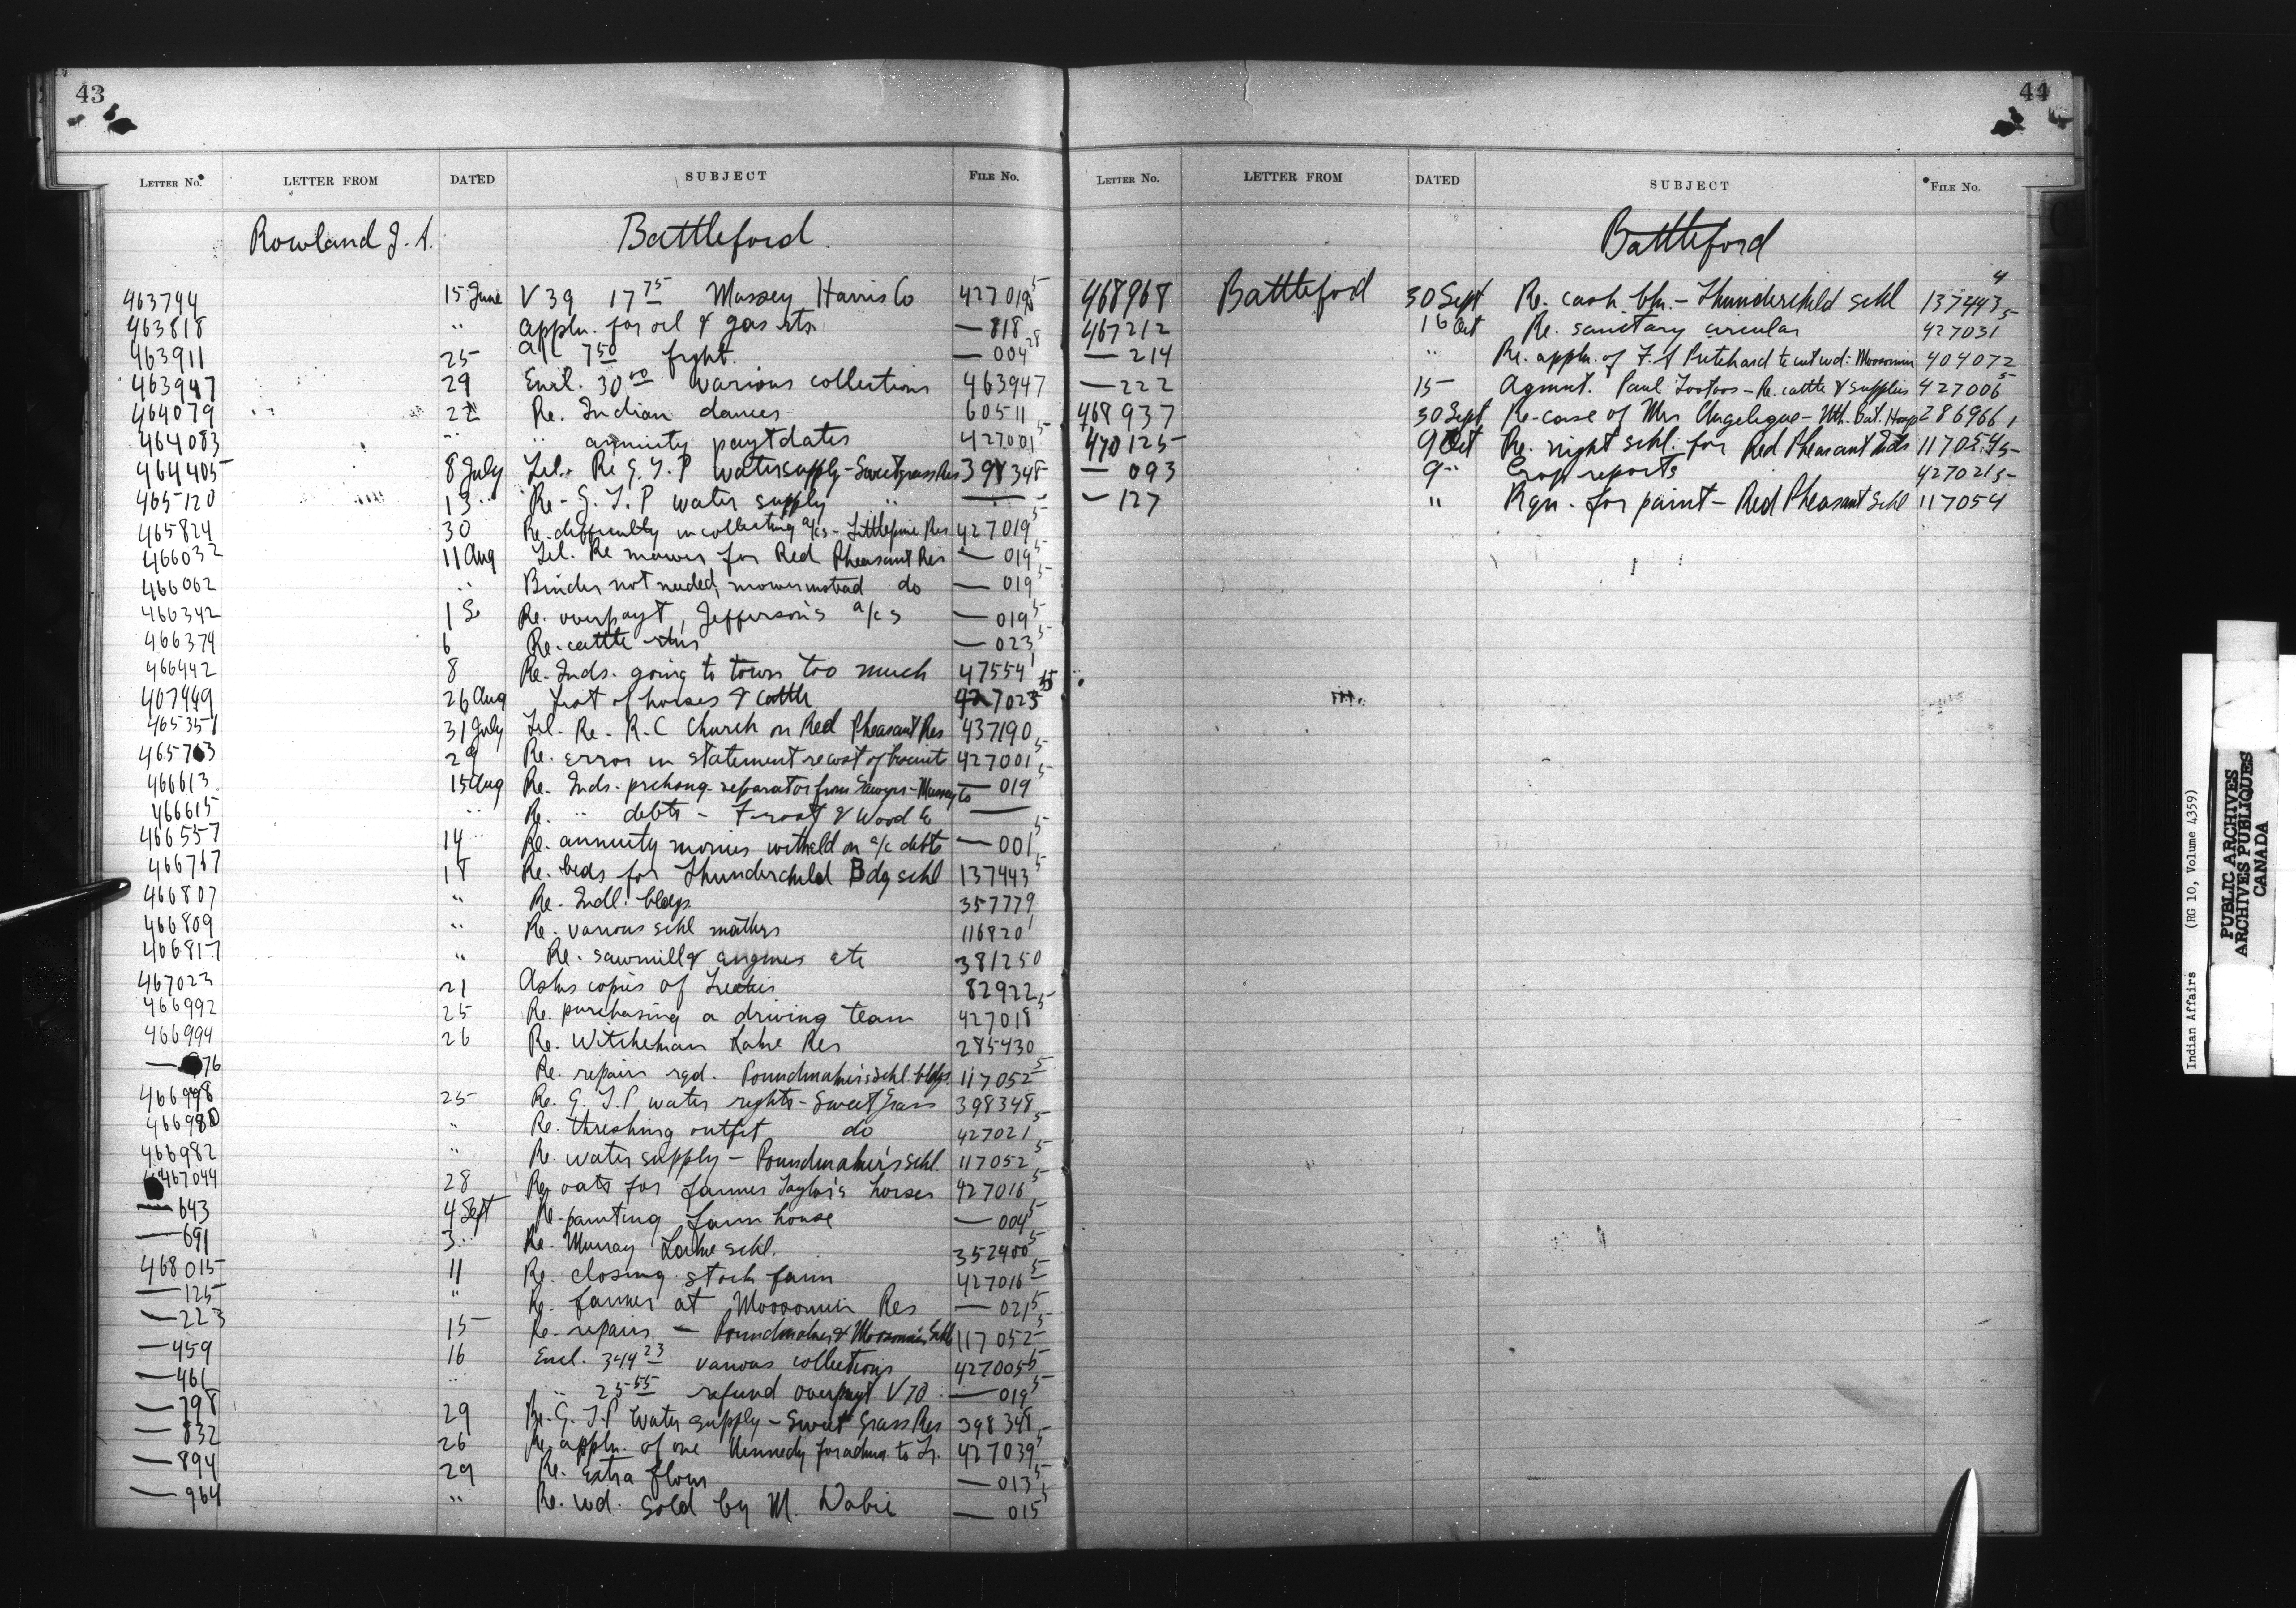 43
LETTER No. LETTER FROM DATED SUBJECT FILE No.
Rowland J. A. Battleford
463744 15 June V 39 17 75 Massey Harris Co 427019 5
463818 " appln. for oil & gas rts — 818
463911 25 a/c 7 50 frght. — 004 28
463947 29 Encl. 30 00 various collections 463947
464079 22 Re. Indian dances 60511
464083 " " annuity payt dates 427001 5
464405 8 July Tel. Re G. T. P water supply - Sweetgrass Res 398348
465120 13 " Re- G. T. P water supply " —
465824 30 Re. difficulty in collecting a/cs - Littlepine Res 427019 5
466032 11 Aug Tel. Re mower for Red Pheasant Res — 019 5
466062 " Binder not needed, mower instead do — 019 5
466342 1 S Re. overpayt, Jefferson's a/cs — 019 5
466374 6 Re. cattle — 023 5
466442 8 Re. Inds. going to town too much 47554 1
467449 26 Aug List of horses & cattle 427023 5
465351 31 July Tel. Re. R.C Church on Red Pheasant Res 437190
465763 29 Re. error in statement re cost of biscuits 427001 5
466613 15 Aug Re. Inds. prchsng. separator from Sawyer-Massey Co — 019 5
466615 " Re. " debts - Frost & Wood Co —
466557 14 " Re. annuity monies witheld on a/c debts — 001 5
466767 18 Re. beds for Thunderchild Bdg schl 137443 5
466807 " Re. Indl. bldgs. 357779
466809 " Re. various schl matters 116820 1
466817 " Re. sawmill & engines etc 381250
467023 21 Asks copies of Treaties 82922
466992 25 Re. purchasing a driving team 427018 5
466994 26 Re. Witchekan Lake Res 285430
— 976 Re. repairs rqd. Poundmaker's schl. bldgs. 117052 5
466998 25 Re. G. T. P water rights - Sweet Grass 398348
466980 " Re. threshing outfit do 427021 5
466982 " Re. water supply - Poundmaker's schl. 117052 5
467044 28 Re. oats for farmer Taylor's horses 427016 5
— 643 4 Sept Re. painting farm house — 004 5
— 691 3 " Re. Murray Lake schl. 352400 5
468015 11 Re. closing stock farm 427016 5
— 125 " Re. farmer at Moosomin Res — 021 5
— 223 15 Re. repairs - Poundmaker & Moosomin Schls 117052 5
— 459 16 Encl. 344 23 various collections 427005 5
— 461 " " 25 55 refund overpayt V 70 — 019 5
— 798 29 Re. G. T. P Water supply - Sweet Grass Res 398348
— 832 26 Re. appln. of one Kennedy for admn. to Tr. 427039 5
— 894 29 Re. extra flour — 013 5
— 964 " Re. wd. sold by M. — 015 5
44
LETTER No. LETTER FROM DATED SUBJECT FILE No.
Battleford
468968 Battleford 30 Sept Re. cash bk. - Thunderchild schl 137443 4
467212 16 Oct Re. sanitary circular 427031 5
— 214 " Re. appln. of F. A Pritchard to cut wd: Moosomin 404072
— 222 15 Agmnt. Paul Tootoos - Re. cattle & supplies 427006 5
468937 30 Sept Re- case of Mrs Angelique - Nth. Bat. Hosp 286966 1
470125 9 Oct Re. night schl. for Red Pheasant Inds 117054 5
— 093 9 " Crop reports 427021 5
— 127 " Rqn. for paint - Red Pheasant Schl 117054
Indian Affairs (RG 10, Volume 4359)
PUBLIC ARCHIVES
ARCHIVES PUBLIQUES
CANADA